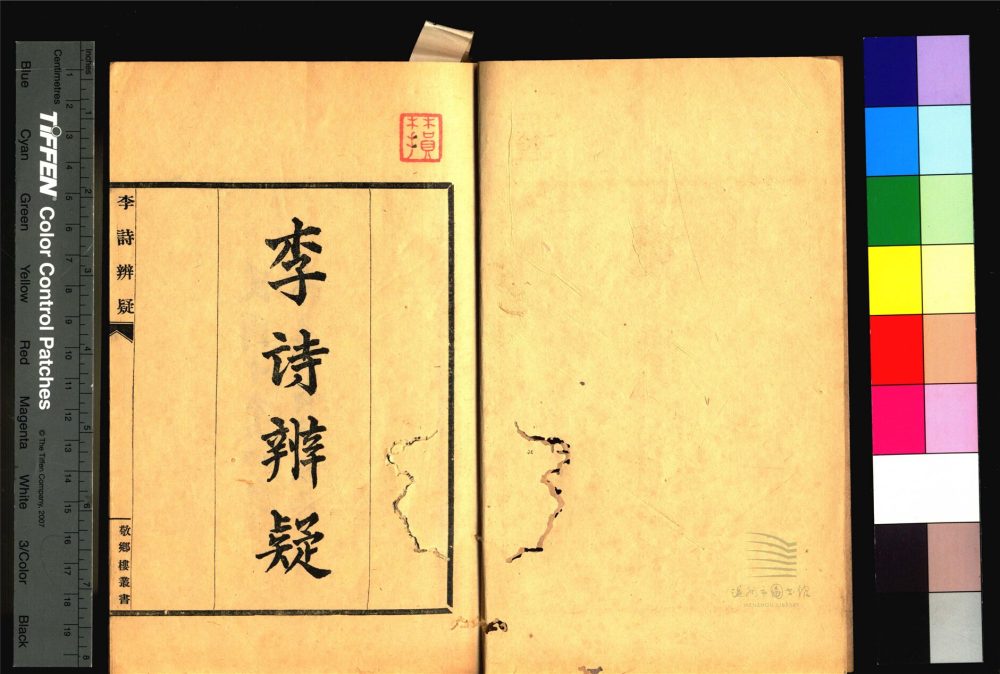 李詩辨疑
李詩辨疑
敬鄉樓叢書
溫州市圖書館
WENZHOU LIBRARY
Inches
1 2 3 4 5 6 7 8
Centimetres
1 2 3 4 5 6 7 8 9 10 11 12 13 14 15 16 17 18 19
TIFFEN Color Control Patches
© The Tiffen Company, 2007
Blue Cyan Green Yellow Red Magenta White 3/Color Black